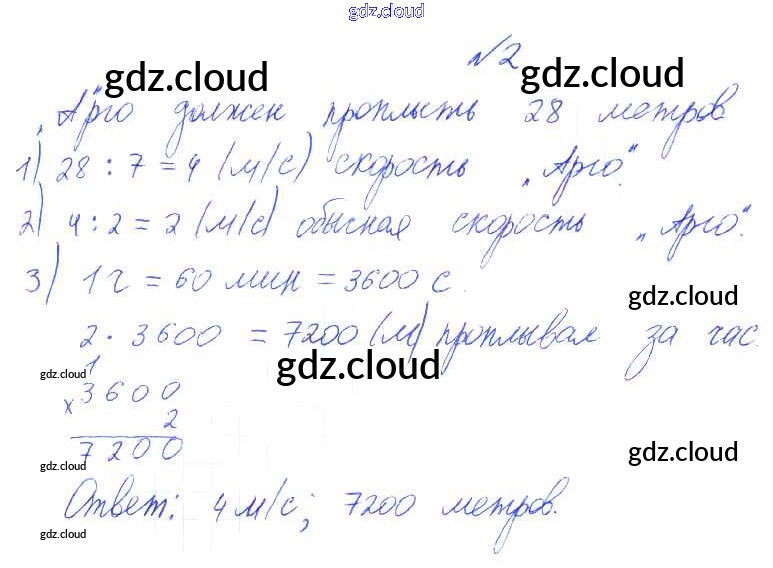 gdz.cloud
№2
gdz.cloud gdz.cloud
"Арго должен проплыть 28 метров
1) 28 : 7 = 4 (м/с) скорость „Арго".
2) 4 : 2 = 2 (м/с) обычная скорость „Арго".
3) 1 ч = 60 мин = 3600 с.
gdz.cloud
2 · 3600 = 7200 (м) проплывал за час.
gdz.cloud
1
gdz.cloud
× 3600
2
7200
gdz.cloud
gdz.cloud
Ответ: 4 м/с; 7200 метров.
gdz.cloud